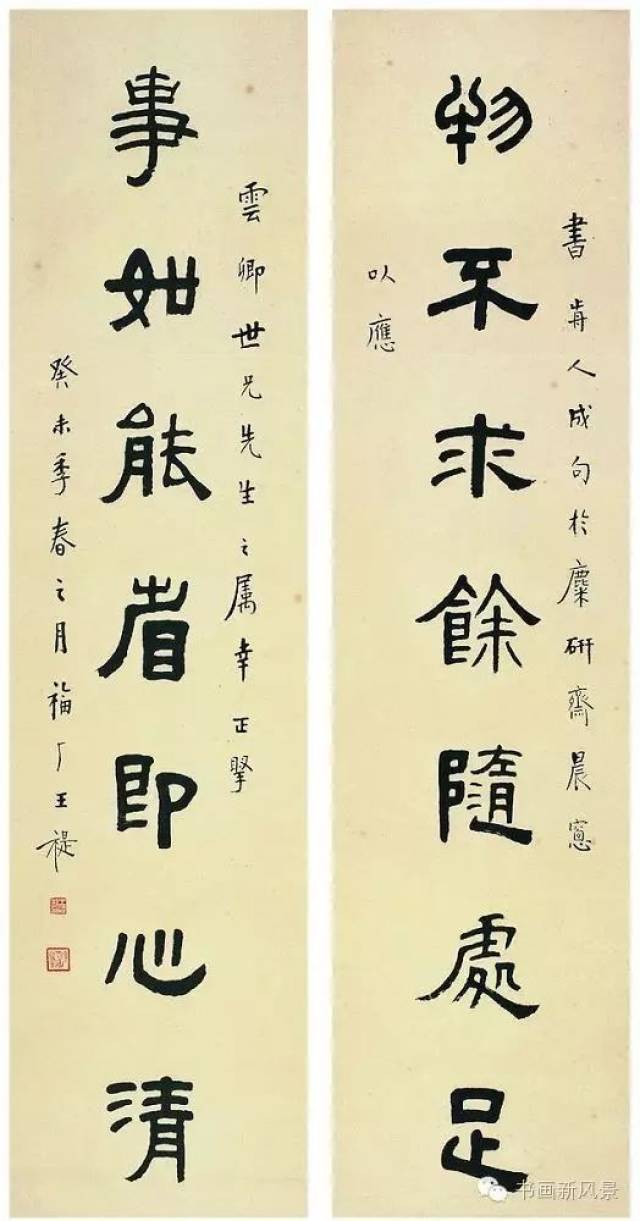 書歬人成句於麋研齋晨窻
物不求餘隨處足
以應
雲卿世兄先生之属幸正掔
事如能省即心清
癸未季春之月福厂王禔
书画新风景